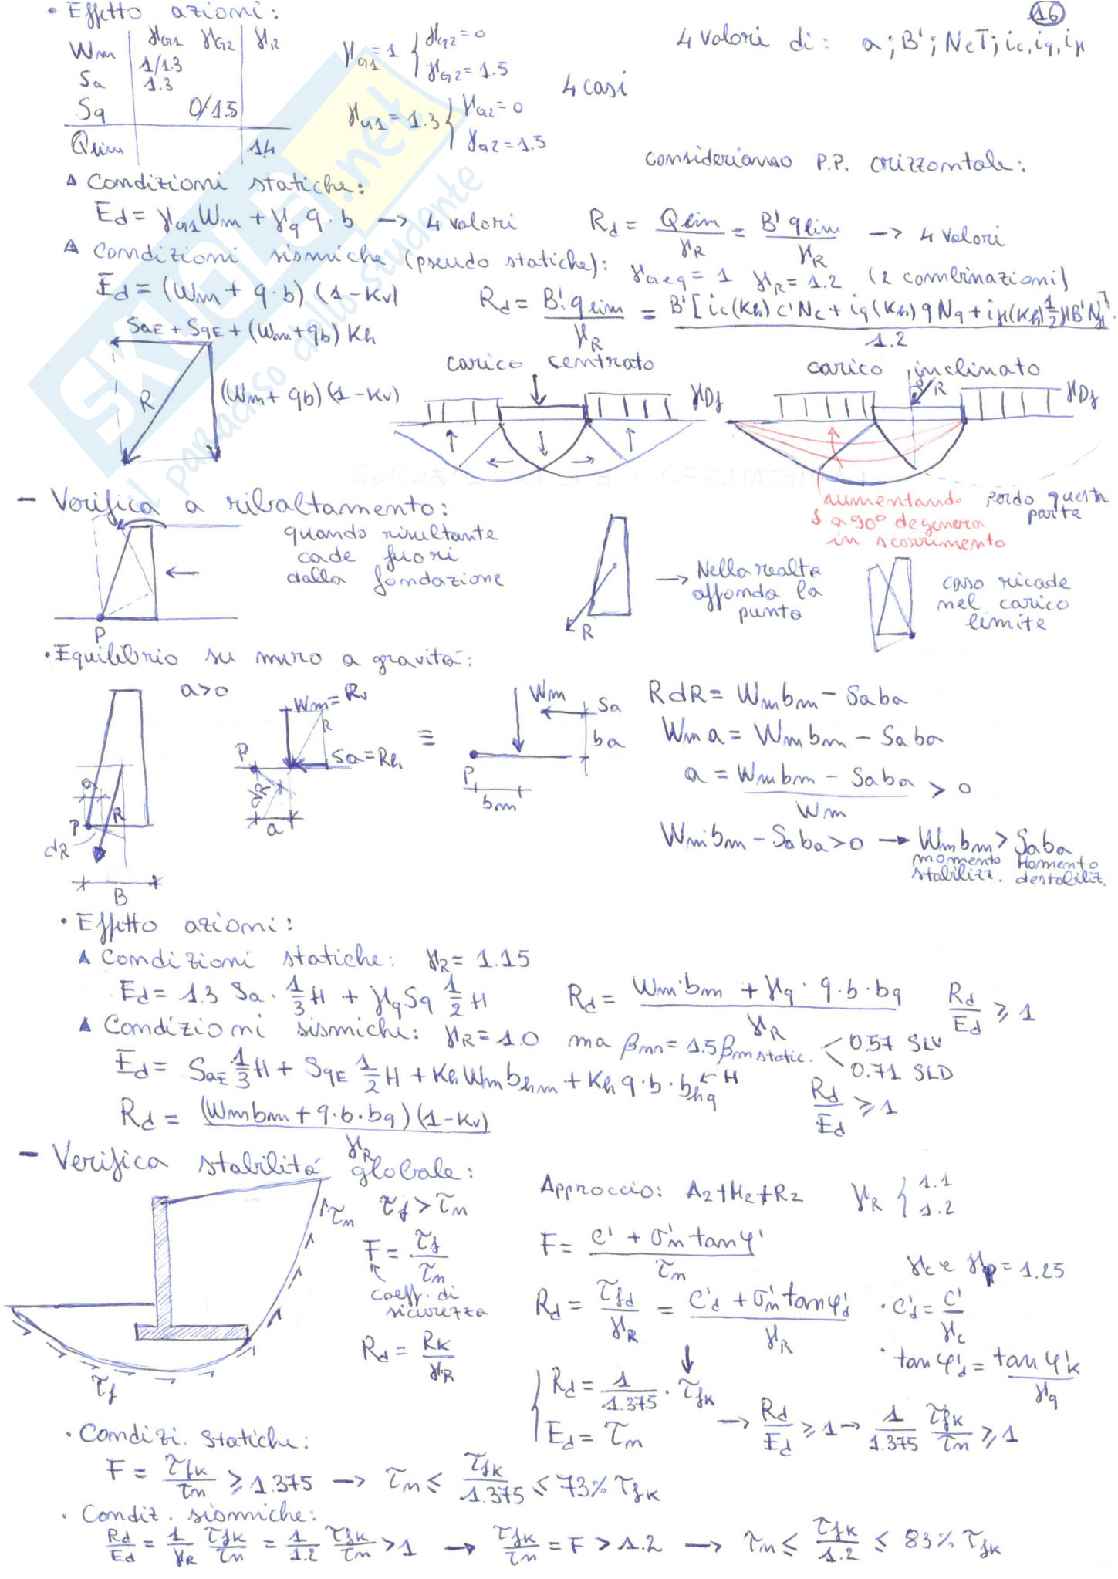 • Effetto azioni:
16
γG1 γG2 γR
Wm 1/1.3
Sa 1.3
Sq 0/1.5
Qlim 1.4
γG1 = 1 { γG2 = 0
γG2 = 1.5
γG1 = 1.3 { γG2 = 0
γG2 = 1.5
4 casi
4 valori di: a; B'; NcT; ic, iq, iγ
consideriamo P.P. orizzontale:
Δ Condizioni statiche:
Ed = γG1 Wm + γq q · b → 4 valori
Rd = Qlim / γR = B' qlim / γR → 4 valori
Δ Condizioni sismiche (pseudo statiche): γG eq = 1 γR = 1.2 (2 combinazioni)
Ed = (Wm + q·b) (1 - Kv)
Rd = B' qlim / γR = B' [ic(Kh) c' Nc + iq(Kh) q Nq + iγ(Kh) 1/2 γB' Nγ] / 1.2
SaE + SqE + (Wm + qb) Kh
R
(Wm + qb) (1 - Kv)
carico centrato
γDf
carico inclinato
δ R
γDf
aumentando
δ a 90° degenera
in scorrimento
perdo questa
parte
SKUOLA.net
il paradiso dello studente
- Verifica a ribaltamento:
quando risultante
cade fuori
dalla fondazione
P
R
→ Nella realtà
affonda la
punta
caso ricade
nel carico
limite
• Equilibrio su muro a gravità:
a>0
a
P
R
dR
B
Wm = Rv
R
P
Sa = Rh
dR
a
≡
Wm
Sa
ba
P
bm
RdR = Wm bm - Sa ba
Wm a = Wm bm - Sa ba
a = Wm bm - Sa ba / Wm > 0
Wm·bm - Sa ba > 0 → Wm bm > Sa ba
momento Momento
stabiliz. destabiliz.
• Effetto azioni:
Δ Condizioni statiche: γR = 1.15
Ed = 1.3 Sa · 1/3 H + γq Sq 1/2 H
Rd = Wm·bm + γq · q·b·bq / γR
Rd/Ed ≥ 1
Δ Condizioni sismiche: γR = 1.0 ma βm = 1.5 βm static. 0.57 SLV
0.71 SLD
Ed = SaE 1/3 H + SqE 1/2 H + Kh Wm bhm + Kh q·b·bhq ← H
Rd/Ed ≥ 1
Rd = (Wm bm + q·b·bq) (1 - Kv) / γR
- Verifica stabilità globale:
τm
τf > τm
F = τf / τm
coeff. di
sicurezza
Rd = Rk / γR
τf
Approccio: A2+M2+R2 γR { 1.1
1.2
F = c' + σ'n tanφ' / τm
γc e γφ = 1.25
Rd = τfd / γR = c'd + σ'n tanφ'd / γR
• c'd = c' / γc
• tanφ'd = tanφ'k / γφ
{ Rd = 1/1.375 · τfk
Ed = τm
→ Rd/Ed ≥ 1 → 1/1.375 τfk/τm ≥ 1
• Condizi. statiche:
F = τfk/τm ≥ 1.375 → τm ≤ τfk/1.375 ≤ 73% τfk
• Condiz. sismiche:
Rd/Ed = 1/γR τfk/τm = 1/1.2 τfk/τm > 1 → τfk/τm = F > 1.2 → τm ≤ τfk/1.2 ≤ 83% τfk